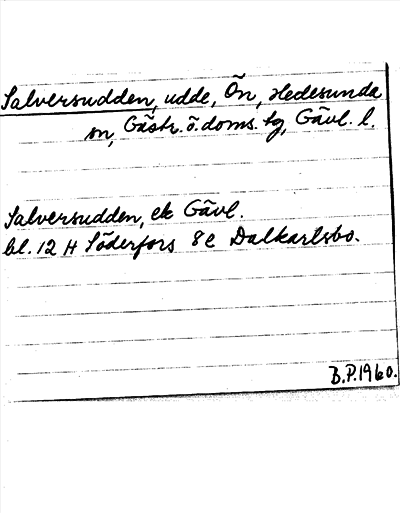 Salversudden, udde, Ön, Hedesunda
sn, Gästr. ö. doms. tg, Gävl. l.
Salversudden, ek Gävl.
bl. 12 H Söderfors 8e Dalkarlsbo.
B.P. 1960.